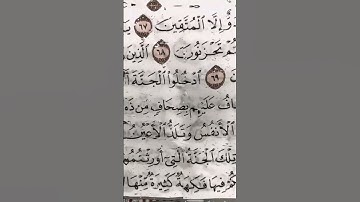 دُوٌّ إِلَّا ٱلْمُتَّقِينَ ٦٧ يَـ
ـتُمْ تَحْزَنُونَ ٦٨ ٱلَّذِينَ
ـنَ ٦٩ ٱدْخُلُوا۟ ٱلْجَنَّةَ أَ
ـافُ عَلَيْهِم بِصِحَافٍ مِّن ذَهَـ
ٱلْأَنفُسُ وَتَلَذُّ ٱلْأَعْيُنُ
تِلْكَ ٱلْجَنَّةُ ٱلَّتِىٓ أُورِثْتُمُو
كُمْ فِيهَا فَٰكِهَةٌ كَثِيرَةٌ مِّنْهَا